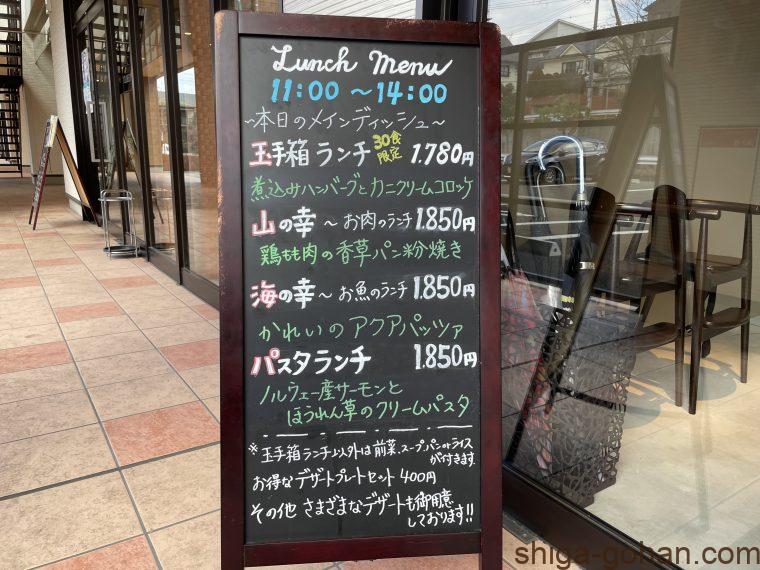 Lunch Menu
11:00 ~14:00
~本日のメインディッシュ~
玉手箱 ランチ 30食限定 1.780円
煮込みハンバーグとカニクリームコロッケ
山の幸 ~ お肉のランチ 1.850円
鶏もも肉の香草パン粉焼き
海の幸 ~ お魚のランチ 1.850円
かれいのアクアパッツァ
パスタランチ 1.850円
ノルウェー産サーモンと
ほうれん草のクリームパスタ
※玉手箱ランチ以外は前菜、スープ、パンorライス
が付きます。
お得なデザートプレートセット 400円
その他 さまざまなデザートも御用意
しております!!
shiga-gohan.com